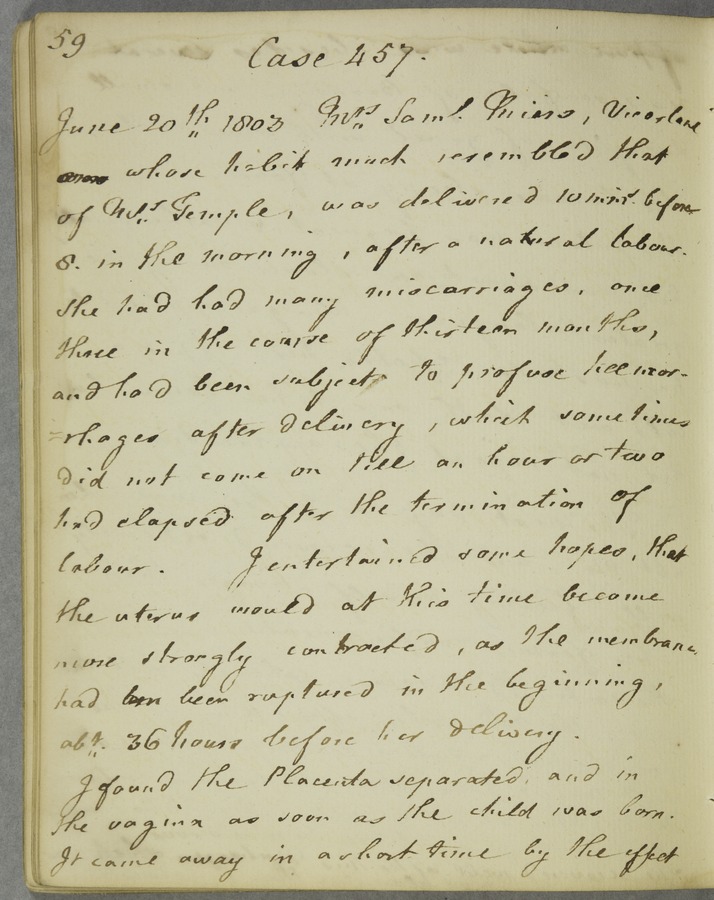 59
Case 457.
June 20th 1803 Mrs Saml. Miers, Vicorlane
whose habit much resembled that
of Mrs Temple, was delivered 10 mins. before
8. in the morning, after a natural labour.
She had had many miscarriages, once
three in the course of thirteen months,
and had been subject to profuse heemor-
=rhages after delivery, which sometimes
did not come on till an hour or two
had elapsed after the termination of
labour. I entertained some hopes, that
the uterus would at this time become
more strongly contracted, as the membran
had been ruptured in the beginning,
abt. 36 hours before her delivery.
I found the Placenta separated, and in
the vagina as soon as the child was born.
It came away in a short time by the effect